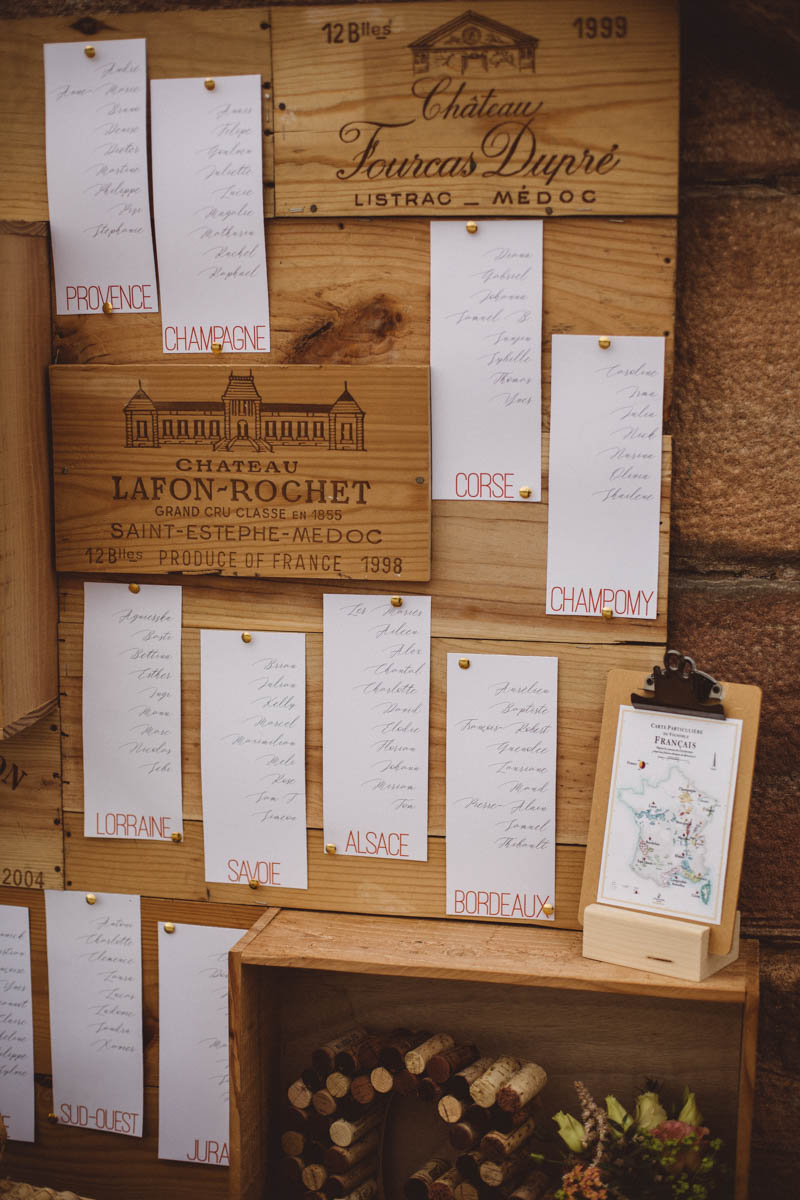 12 Blles 1999
Château
Fourcas Dupré
LISTRAC _ MÉDOC
André
Anne-Marie
Bruno
Denise
Dieter
Martine
Philippe
Stéphanie
PROVENCE
Anaïs
Felipe
Juliette
Lucie
Magalie
Mathurin
Rachel
Raphael
CHAMPAGNE
Diana
Gabriel
Johanna
Samuel B
Sybille
Thomas
Yves
CORSE
Caroline
Irma
Julia
Nick
Marina
Olivia
Sharlene
CHAMPOMY
CHATEAU
LAFON-ROCHET
GRAND CRU CLASSE EN 1855
SAINT-ESTEPHE-MEDOC
12 Blles PRODUCE OF FRANCE 1998
Agnieszka
Basti
Bettina
Esther
Ingi
Manu
Marc
Nicolas
Sibi
LORRAINE
Brian
Julian
Kelly
Marcel
Maximilian
Melo
Rose
Sam J
Simeon
SAVOIE
Les Mariés
Aileen
Alex
Chantal
Charlotte
David
Elodie
Florian
Johann
Miriam
Tom
ALSACE
Aurélien
Baptiste
François-Robert
Gwenolee
Lauriane
Maud
Pierre-Alain
Samuel
Thibault
BORDEAUX
CARTE PARTICULIÈRE
DU VIGNOBLE
FRANÇAIS
ON
2004
SUD-OUEST
Anton
Charlotte
Clemence
Laura
Lucas
Ludovic
Sandra
Xavier
JURA